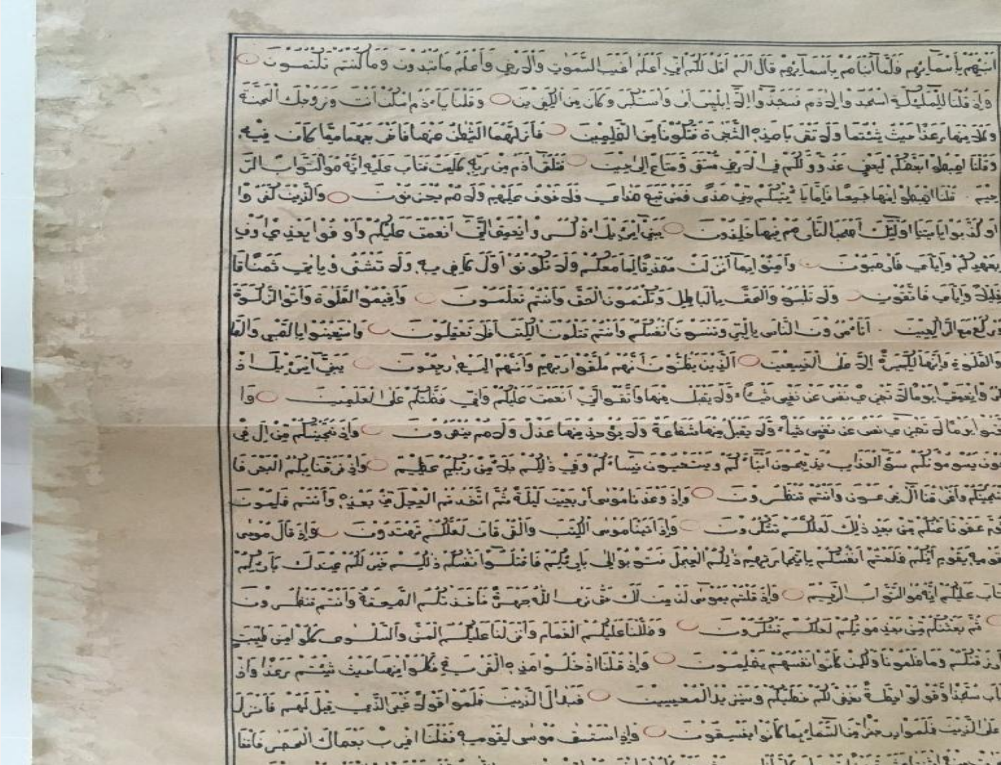 انبئهم باسمائهم فلما انباهم باسمائهم قال الم اقل لكم اني اعلم غيب السموت والارض واعلم ما تبدون وما كنتم تكتمون
واذ قلنا للملئكة اسجدوا لادم فسجدوا الا ابليس ابى واستكبر وكان من الكفرين وقلنا يادم اسكن انت وزوجك الجنة
وكلا منها رغدا حيث شئتما ولا تقربا هذه الشجرة فتكونا من الظلمين فازلهما الشيطن عنها فاخرجهما مما كانا فيه
وقلنا اهبطوا بعضكم لبعض عدو ولكم في الارض مستقر ومتاع الى حين فتلقى ادم من ربه كلمت فتاب عليه انه هو التواب الر
حيم قلنا اهبطوا منها جميعا فاما ياتينكم مني هدى فمن تبع هداي فلا خوف عليهم ولا هم يحزنون والذين كفروا
وكذبوا بايتنا اولئك اصحب النار هم فيها خلدون يبني اسرءيل اذكروا نعمتي التي انعمت عليكم واوفوا بعهدي اوف
بعهدكم وايي فارهبون وامنوا بما انزلت مصدقا لما معكم ولا تكونوا اول كافر به ولا تشتروا بايتي ثمنا
قليلا وايي فاتقون ولا تلبسوا الحق بالبطل وتكتموا الحق وانتم تعلمون واقيموا الصلوة واتوا الزكوة
واركعوا مع الركعين اتامرون الناس بالبر وتنسون انفسكم وانتم تتلون الكتب افلا تعقلون واستعينوا بالصبر والصلو
والصلوة وانها لكبيرة الا على الخشعين الذين يظنون انهم ملقوا ربهم وانهم اليه رجعون يبني اسرءيل اذ
نعمتي التي انعمت عليكم واني فضلتكم على العلمين وا
تقوا يوما لا تجزي نفس عن نفس شيئا ولا يقبل منها شفاعة ولا يؤخذ منها عدل ولا هم ينصرون واذ نجينكم من ال فر
عون يسومونكم سوء العذاب يذبحون ابناءكم ويستحيون نساءكم وفي ذلكم بلاء من ربكم عظيم واذ فرقنا بكم البحر فا
نجينكم واغرقنا ال فرعون وانتم تنظرون واذ وعدنا موسى اربعين ليلة ثم اتخذتم العجل من بعده وانتم ظلمون
ثم عفونا عنكم من بعد ذلك لعلكم تشكرون واذ اتينا موسى الكتب والفرقان لعلكم تهتدون واذ قال موسى
لقومه يقوم انكم ظلمتم انفسكم باتخاذكم العجل فتوبوا الى بارئكم فاقتلوا انفسكم ذلكم خير لكم عند بارئكم
فتاب عليكم انه هو التواب الرحيم واذ قلتم يموسى لن نؤمن لك حتى نرى الله جهرة فاخذتكم الصعقة وانتم تنظرون
ثم بعثنكم من بعد موتكم لعلكم تشكرون وظللنا عليكم الغمام وانزلنا عليكم المن والسلوى كلوا من طيبت
ما رزقنكم وما ظلمونا ولكن كانوا انفسهم يظلمون واذ قلنا ادخلوا هذه القرية فكلوا منها حيث شئتم رغدا واد
الباب سجدا وقولوا حطة نغفر لكم خطيكم وسنزيد المحسنين فبدل الذين ظلموا قولا غير الذي قيل لهم فانزلنا
على الذين ظلموا رجزا من السماء بما كانوا يفسقون واذ استسقى موسى لقومه فقلنا اضرب بعصاك الحجر فانفا